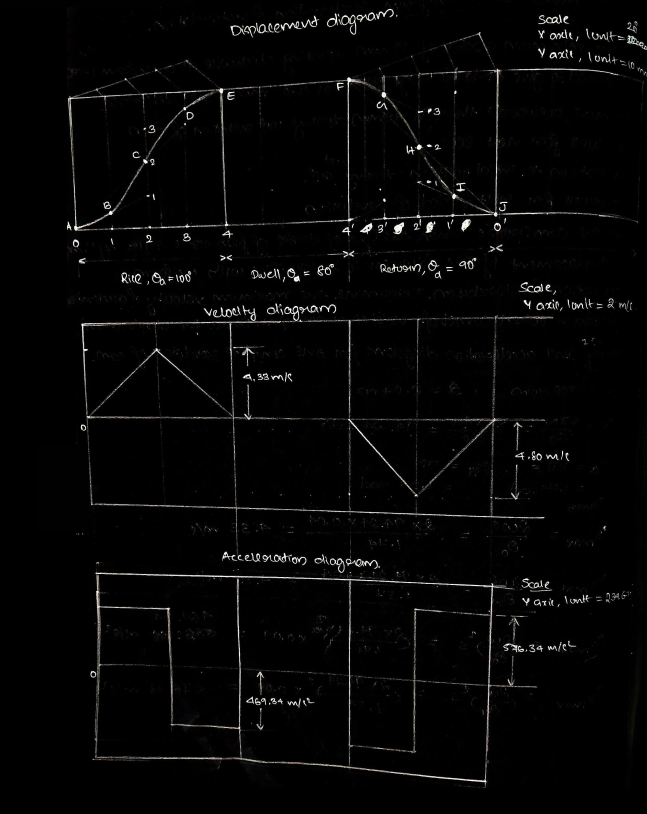 Displacement diagram.
Scale
X axis, 1unit =
Y axis, 1unit = 10 mm
E
F
D
G
3
3
C
2
H
2
B
1
1
I
A
J
0
1
2
3
4
4'
3'
2'
1'
0'
Rise, θa = 100°
Dwell, θd = 80°
Return, θd = 90°
Velocity diagram
Scale,
Y axis, 1unit = 2 m/s
4.33 m/s
0
4.80 m/s
Acceleration diagram
Scale
Y axis, 1unit =
576.34 m/s²
0
469.34 m/s²